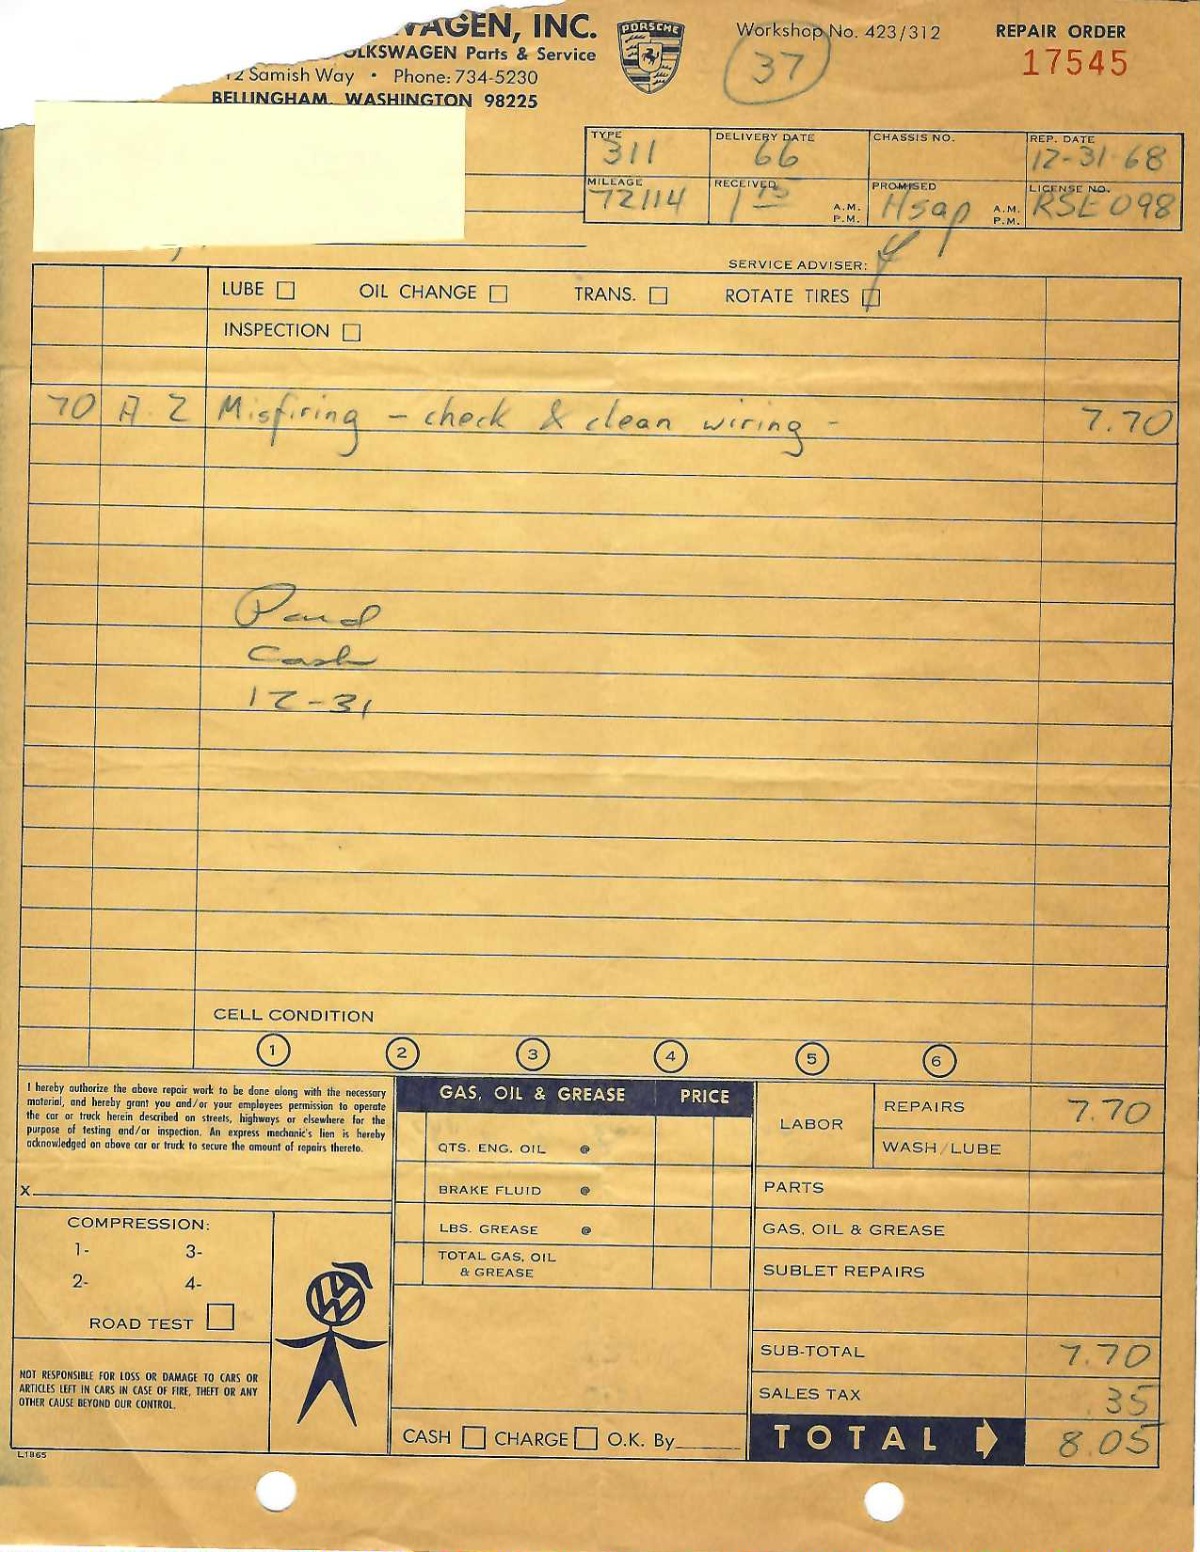 WAGEN, INC.
OLKSWAGEN Parts & Service
12 Samish Way • Phone: 734-5230
BELLINGHAM, WASHINGTON 98225
PORSCHE
Workshop No. 423/312
37
REPAIR ORDER
17545
TYPE 311 DELIVERY DATE 66 CHASSIS NO. REP. DATE 12-31-68
MILEAGE 72114 RECEIVED 1 15 A.M. P.M. PROMISED Asap A.M. P.M. LICENSE NO. RSE 098
SERVICE ADVISER:
LUBE OIL CHANGE TRANS. ROTATE TIRES
INSPECTION
70 A 2 Misfiring - check & clean wiring - 7.70
Paid
Cash
12-31
CELL CONDITION
1 2 3 4 5 6
I hereby authorize the above repair work to be done along with the necessary
material, and hereby grant you and/or your employees permission to operate
the car or truck herein described on streets, highways or elsewhere for the
purpose of testing and/or inspection. An express mechanic's lien is hereby
acknowledged on above car or truck to secure the amount of repairs thereto.
X
COMPRESSION:
1- 3-
2- 4-
ROAD TEST
NOT RESPONSIBLE FOR LOSS OR DAMAGE TO CARS OR
ARTICLES LEFT IN CARS IN CASE OF FIRE, THEFT OR ANY
OTHER CAUSE BEYOND OUR CONTROL.
L1865
VW
GAS, OIL & GREASE PRICE
QTS. ENG. OIL @
BRAKE FLUID @
LBS. GREASE @
TOTAL GAS, OIL
& GREASE
CASH CHARGE O.K. By
LABOR REPAIRS 7.70
WASH/LUBE
PARTS
GAS, OIL & GREASE
SUBLET REPAIRS
SUB-TOTAL 7.70
SALES TAX .35
TOTAL 8.05